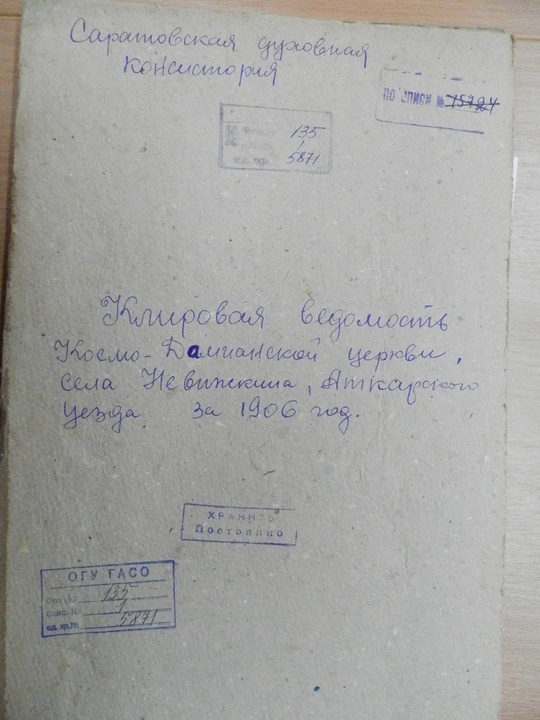 Саратовская духовная
консистория
ПО ОПИСИ № 15724
135
1
ед. хр.
5871
Клировая ведомость
Космо-Дамианской церкви,
села Невижкина, Аткарского
уезда за 1906 год.
ХРАНИТЬ
Постоянно
ОГУ ГАСО
135
1
ед. хр. № 5871